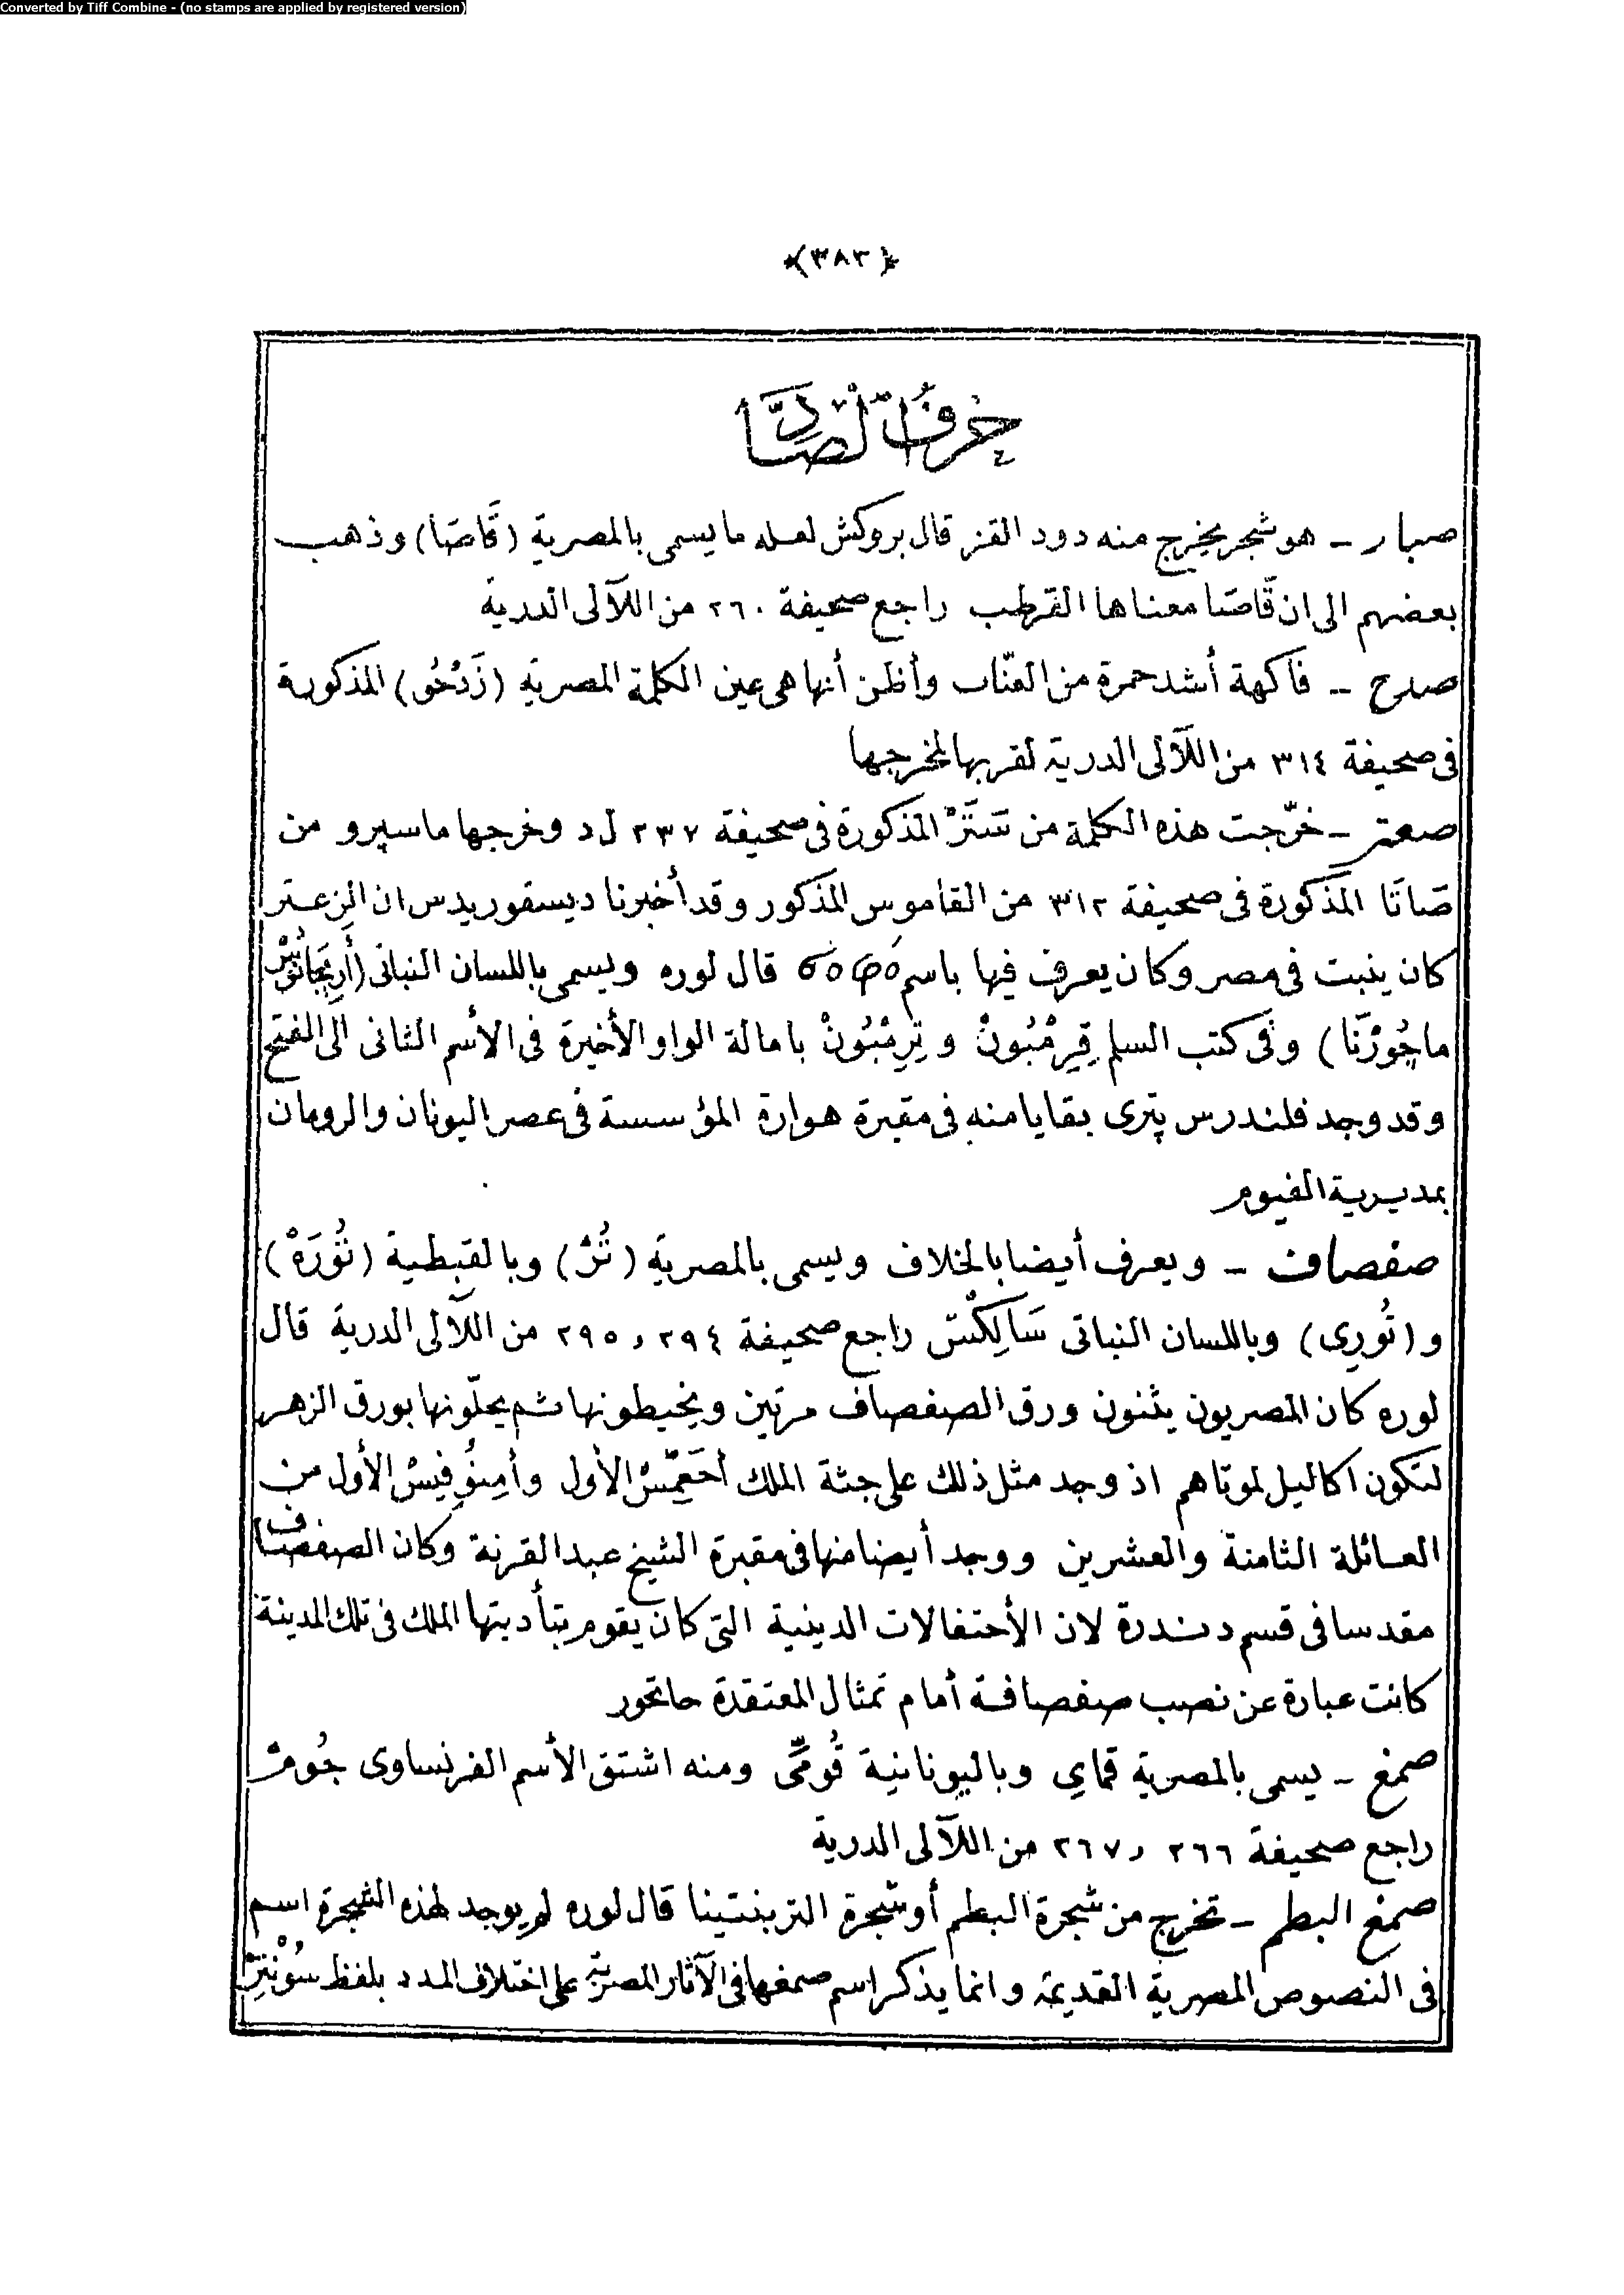 Converted by Tiff Combine - (no stamps are applied by registered version)
﴿٣٨٣﴾
حرف الصاد
صبار – هو شجر يخرج منه دود القز قال بروكش لعله ما يسمى بالمصرية (قَاصَا) وذهب
بعضهم الى ان قَاصَا معناها القرطب راجع صحيفة ٢٦٠ من اللآلى الدرية
صدح – فاكهة أشد حمرة من العنّاب وأظن أنها هى عين الكلمة المصرية (زَدْخُو) المذكورة
فى صحيفة ٣١٤ من اللآلى الدرية لقربها لمخرجها
صعتر – خرّجت هذه الكلمة من سَتَرْ المذكورة فى صحيفة ٢٣٧ ل د وخرجها ماسپرو من
صَاتَا المذكورة فى صحيفة ٣١٢ من القاموس المذكور وقد أخبرنا ديسقوريدس ان الزعتر
كان ينبت فى مصر وكان يعرف فيها باسم قال لوره ويسمى باللسان النباتى (أُرِيجَانُوسْ
ماجُورْنَا) وفى كتب السلم قِرِمْبُونْ وتِرِمْبُونْ بامالة الواو الأخيرة فى الأسم الثانى الى الفتح
وقد وجد فلندرس پترى بقايا منه فى مقبرة هوارة المؤسسة فى عصر اليونان والرومان
بمديرية الفيوم
صفصاف – ويعرف أيضا بالخلاف ويسمى بالمصرية (تُرْ) وبالقبطية (تُورَهْ)
و(تُورِى) وباللسان النباتى سَالِكْسْ راجع صحيفة ٢٩٤ و٢٩٥ من اللآلى الدرية قال
لوره كان المصريون يثنون ورق الصفصاف مرتين ويخيطونها ثم يحلّونها بورق الزهر
لتكون اكاليل لموتاهم اذ وجد مثل ذلك على جثة الملك أَحَعْمِسْ الأول وأمِنُوفِيسْ الأول من
العائلة الثامنة والعشرين ووجد أيضا منها فى مقبرة الشيخ عبد القرنة وكان الصفصاف
مقدسا فى قسم دندرة لان الأحتفالات الدينية التى كان يقوم بتأديتها الملك فى تلك المدينة
كانت عبارة عن نصب صفصافة أمام تمثال المعتقدة حاتحور
صمغ – يسمى بالمصرية قماى وباليونانية قُومِّى ومنه اشتق الأسم الفرنساوى جُومْ
راجع صحيفة ٢٦٦ و٢٦٧ من اللآلى الدرية
صمغ البطم – تخرج من شجرة البطم أو شجرة التربنتينا قال لوره لم يوجد لهذه الشجرة اسم
فى النصوص المصرية القديمة وانما يذكر اسم صمغها فى الآثار المصرية على اختلاف المدد بلفظ سُونْتِرْ